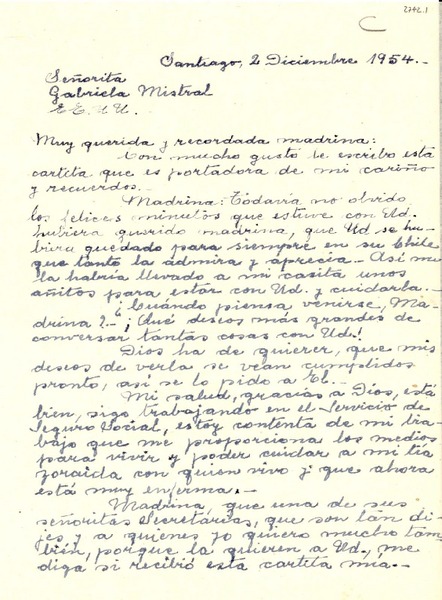 2742.1
C
Santiago, 2 Diciembre 1954.-
Señorita
Gabriela Mistral
EE. UU.
Muy querida y recordada madrina:
Con mucho gusto le escribo esta
cartita que es portadora de mi cariño
y recuerdos.
Madrina: Todavía no olvido
los felices minutos que estuve con Ud.
hubiera querido madrina, que Ud se hu-
biera quedado para siempre en su Chile
que tanto la admira y aprecia.- Así me
la habría llevado a mi casita unos
añitos para estar con Ud. y cuidarla.-
¿Cuándo piensa venirse, Ma-
drina?.- ¡Qué deseos más grandes de
conversar tantas cosas con Ud.!
Dios ha de querer, que mis
deseos de verla se vean cumplidos
pronto, así se lo pido a El.-
Mi salud, gracias a Dios, está
bien, sigo trabajando en el Servicio de
Seguro Social, estoy contenta de mi tra-
bajo que me proporciona los medios
para vivir y poder cuidar a mi tía
Zoraida con quien vivo y que ahora
está muy enferma.-
Madrina, que una de sus
señoritas Secretarias, que son tan di-
jes y a quienes yo quiero mucho tam
bién, porque la quieren a Ud., me
diga si recibió esta cartita mía.-